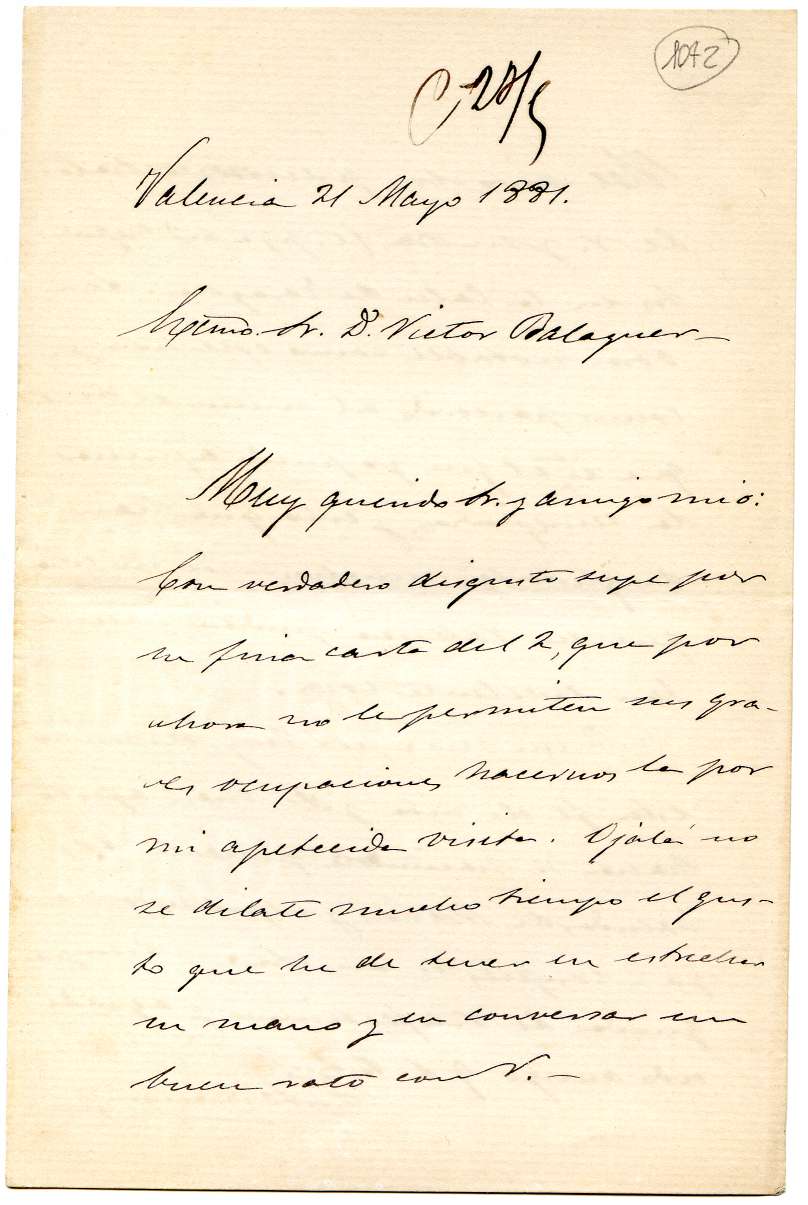 1072
C 28/5
Valencia 21 Mayo 1881.
Exmo. Sr. D. Victor Balaguer—
Muy querido Sr. y amigo mio:
Con verdadero disgusto supe por
su fina carta del 2, que por
ahora no le permiten sus gra-
ves ocupaciones hacernos la por
mi apetecida visita. Ojalá no
se dilate mucho tiempo el gus-
to que he de tener en estrechar
su mano y en conversar un
buen rato con V.—